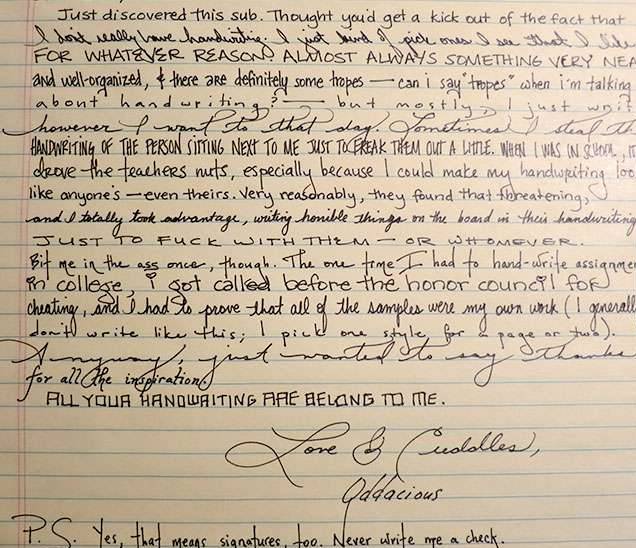 Just discovered this sub. Thought you'd get a kick out of the fact that
I don't really have handwriting. I just kind of pick ones I see that I like
FOR WHATEVER REASON. ALMOST ALWAYS SOMETHING VERY NEA
and well-organized, & there are definitely some tropes — can i say "tropes" when i'm talking
about handwriting? — but mostly, I just writ
however I want to that day. Sometimes I steal th
HANDWRITING OF THE PERSON SITTING NEXT TO ME JUST TO FREAK THEM OUT A LITTLE. WHEN I WAS IN SCHOOL, IT
drove the teachers nuts, especially because I could make my handwriting loo
like anyone's — even theirs. Very reasonably, they found that threatening,
and I totally took advantage, writing horrible things on the board in their handwriting
JUST TO FUCK WITH THEM — OR WHOMEVER.
Bit me in the ass once, though. The one time I had to hand-write assignme
in college, i got called before the honor council for
cheating, and I had to prove that all of the samples were my own work (I generall
don't write like this; I pick one style for a page or two).
Anyway, just wanted to say thanks
for all the inspiration.
ALL YOUR HANDWRITING ARE BELONG TO ME.
Love & Cuddles,
Oddacious
P.S. Yes, that means signatures, too. Never write me a check.